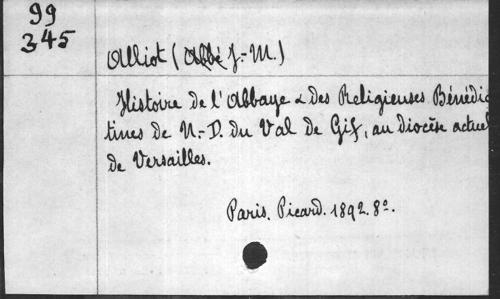 99
345
Alliot (Abbé J.-M.)
Histoire de l'Abbaye & des Religieuses Bénédic
tines de N.-D. du Val de Gif, au diocèse actuel
de Versailles.
Paris. Picard. 1892. 8º.